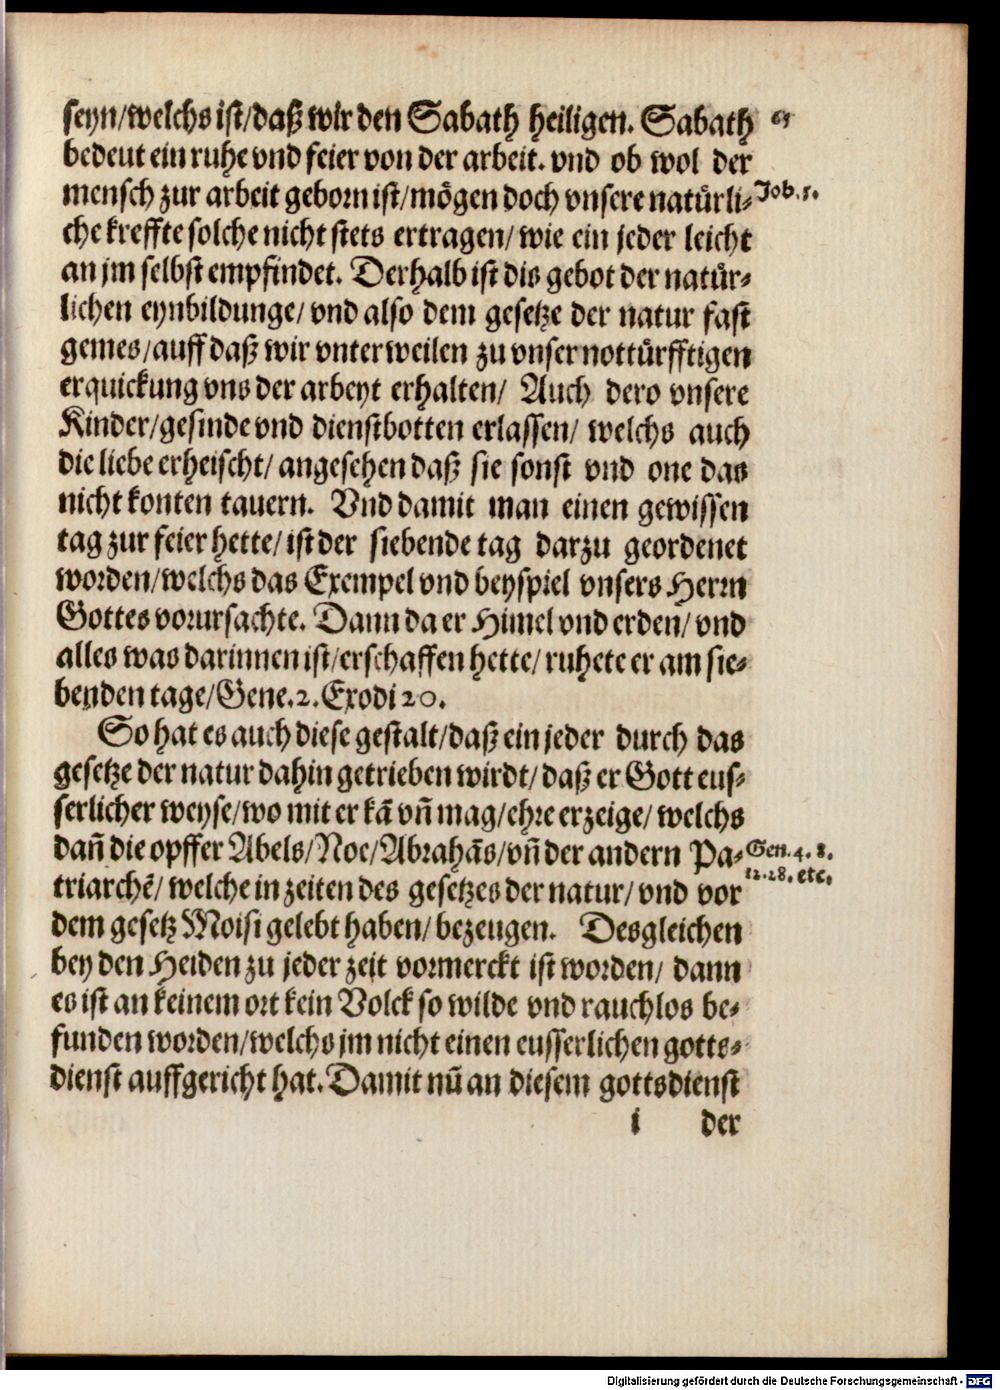 seyn/welchs ist/daß wir den Sabath heiligen. Sabath
bedeut ein ruhe vnd feier von der arbeit. vnd ob wol der
mensch zur arbeit geborn ist/mögen doch vnsere natürli-
Job. 5.
che kreffte solche nicht stets ertragen/ wie ein jeder leicht
an jm selbst empfindet. Derhalb ist dis gebot der natür-
lichen eynbildunge/ vnd also dem gesetze der natur fast
gemes/auff daß wir vnterweilen zu vnser nottürfftigen
erquickung vns der arbeyt erhalten/ Auch dero vnsere
Kinder/gesinde vnd dienstbotten erlassen/ welchs auch
die liebe erheischt/ angesehen daß sie sonst vnd one das
nicht konten tauern. Vnd damit man einen gewissen
tag zur feier hette/ ist der siebende tag darzu geordenet
worden/welchs das Exempel vnd beyspiel vnsers Herrn
Gottes vorursachte. Dann da er Himel vnd erden/ vnd
alles was darinnen ist/erschaffen hette/ ruhete er am sie-
benden tage/Gene.2. Exodi 20.
So hat es auch diese gestalt/daß ein jeder durch das
gesetze der natur dahin getrieben wirdt/ daß er Gott eus-
serlicher weyse/wo mit er kā vñ mag/ehre erzeige/ welchs
dañ die opffer Abels/Noe/Abrahās/vñ der andern Pa-
Gen. 4. 8.
12. 28. etc.
triarchē/ welche in zeiten des gesetzes der natur/ vnd vor
dem gesetz Moisi gelebt haben/ bezeugen. Desgleichen
bey den Heiden zu jeder zeit vormerckt ist worden/ dann
es ist an keinem ort kein Volck so wilde vnd rauchlos be-
funden worden/welchs jm nicht einen eusserlichen gotts-
dienst auffgericht hat. Damit nū an diesem gottsdienst
i der
Digitalisierung gefördert durch die Deutsche Forschungsgemeinschaft - DFG